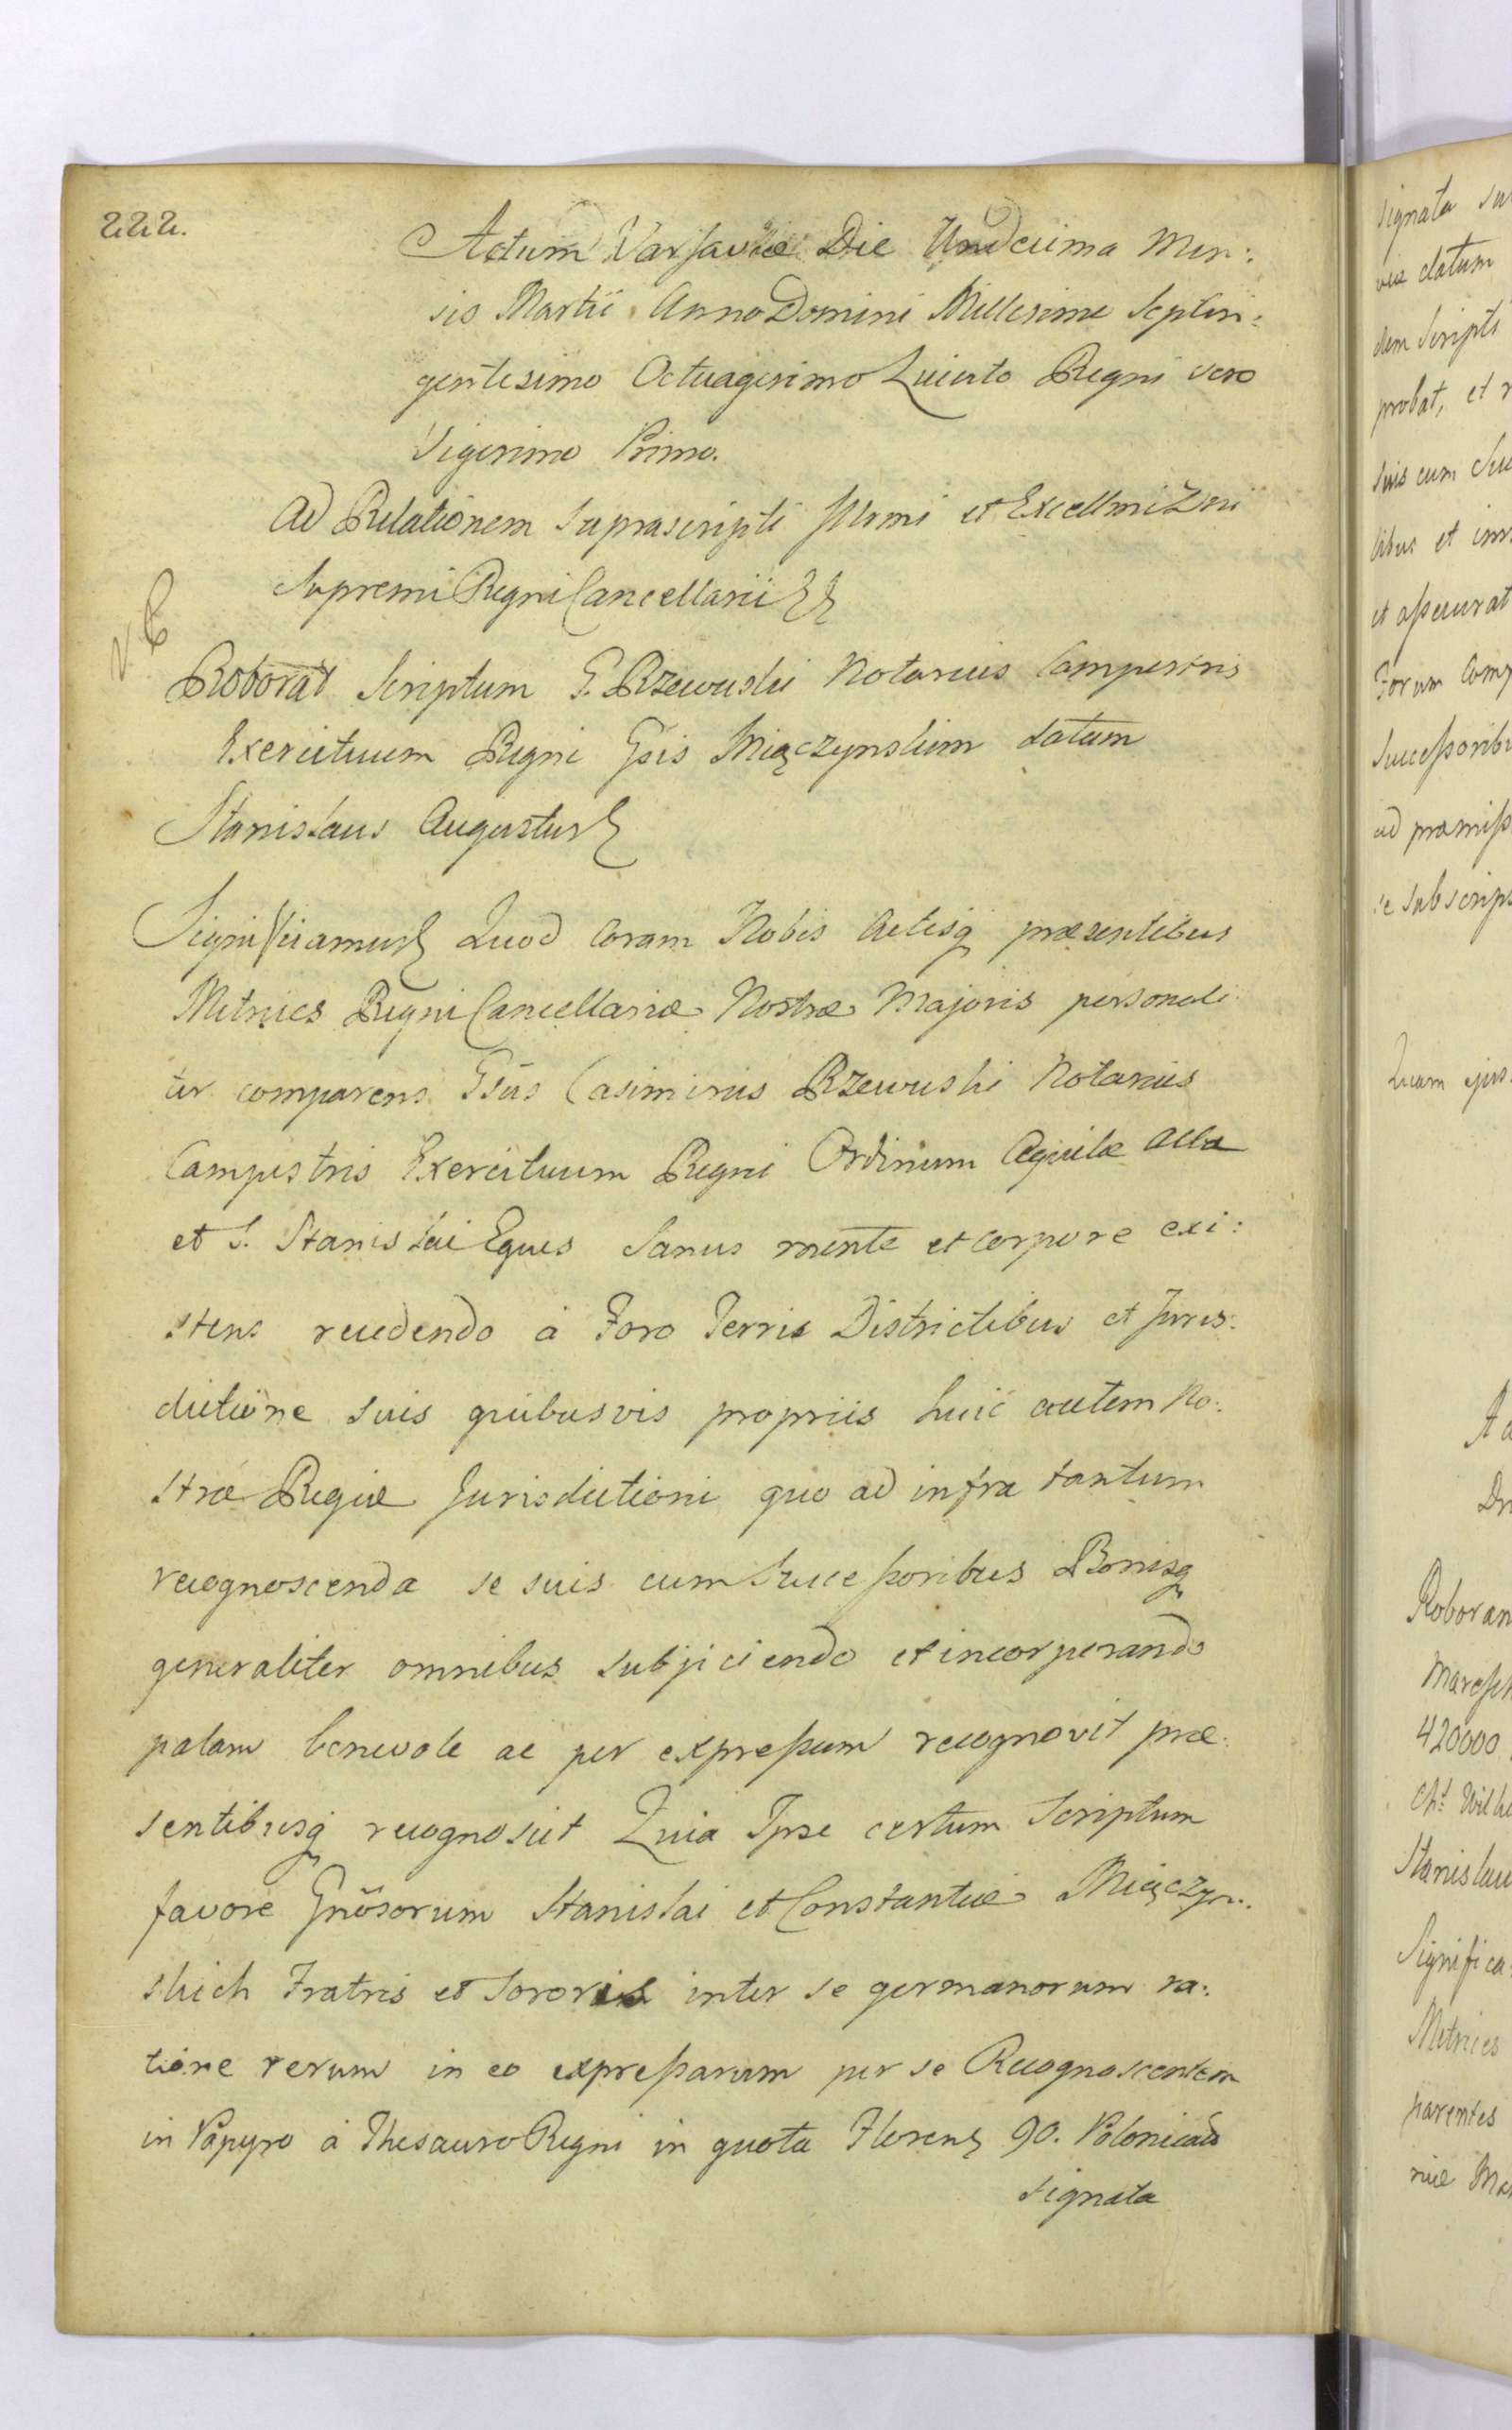 222.
Actum Varsaviæ Die Undecima Men:
sis Martii Anno Domini Millesimo Septin:
gentesimo Octuagesimo Quinto Regni vero
Vigesimo Primo.
Ad Relationem Suprascripti Illrmi et Excellmi Dni
Supremi Regni Cancellarii
NB
Roborat Scriptum G. Rzewuski Notarius Campestris
Exercituum Regni Gsis Miączynskim datum
Stanislaus Augustus
Significamus Quod Coram Nobis Actisq præsentibus
Metrices Regni Cancellariæ Nostræ Majoris personali
ter comparens Gsus Casimirus Rzewuski Notarius
Campestris Exercituum Regni Ordinum Aquilæ Albæ
et S. Stanislai Eques Sanus mente et corpore exi:
stens recedendo à Foro Terris Districtibus et Juris:
dictione suis quibusvis propriis huic autem No:
stræ Regiæ Jurisdictioni quo ad infra tantum
recognoscenda se suis cum Successoribus Bonisq
generaliter omnibus subjiciendo et incorporando
palam benevole ac per expressum recognovit præ:
sentibusq recognoscit Quia Ipse certum Scriptum
favore Gnõsorum Stanislai et Constantiæ Miączyn:
skich Fratris et Sororis inter se germanorum ra:
tione rerum in eo expressarum per se Recognoscentem
in Papyro à Thesauro Regni in quota Floren 90. Polonical
signata
signata
viæ datum
dem Scripti
probat, et
suis cum
libus et
et assecurat
Forum
Successoribu
ad præmiss
se subscrips
Quam ejus
Roboran
420000
Stanislau
Significa
Metrices
parentes